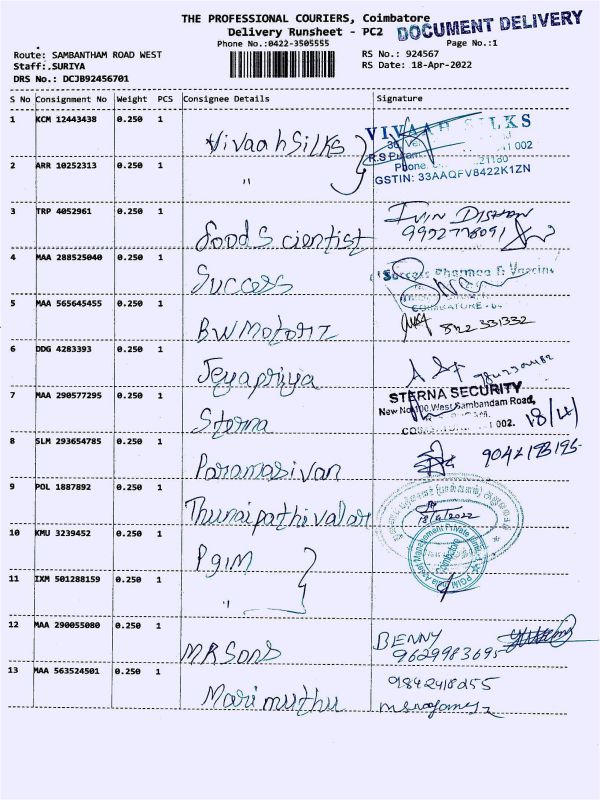 THE PROFESSIONAL COURIERS, Coimbatore
DOCUMENT DELIVERY
Delivery Runsheet - PC2
Phone No.:0422-3505555
Page No.:1
Route: SAMBANTHAM ROAD WEST
RS No.: 924567
Staff:.SURIYA
RS Date: 18-Apr-2022
DRS No.: DCJB92456701
S No Consignment No Weight PCS Consignee Details Signature
1 KCM 12443438 0.250 1 Vivaah Silks
VIVAAH SILKS
R.S.Puram
002
Phone
GSTIN: 33AAQFV8422K1ZN
2 ARR 10252313 0.250 1 "
3 TRP 4052961 0.250 1 food Scientist
4 MAA 288525040 0.250 1 Success
Success Pharma & Vaccine
COIMBATORE
5 MAA 565645455 0.250 1 BWMotorz
822 331332
6 DDG 4283393 0.250 1 Jeyapriya
7 MAA 290577295 0.250 1 Sterna
STERNA SECURITY
New No.100, West Sambandam Road,
002.
18/4/
8 SLM 293654785 0.250 1 Paramasivan
9 POL 1887892 0.250 1 Thunaipathivalar
18/4/2022
10 KMU 3239452 0.250 1 PgIM
PGIM India Asset Management Private Limited
Coimbatore
11 IXM 501288159 0.250 1 "
12 MAA 290055080 0.250 1 MRSons
BENNY
9629983695
13 MAA 563524501 0.250 1 Marimuthu
9842418255